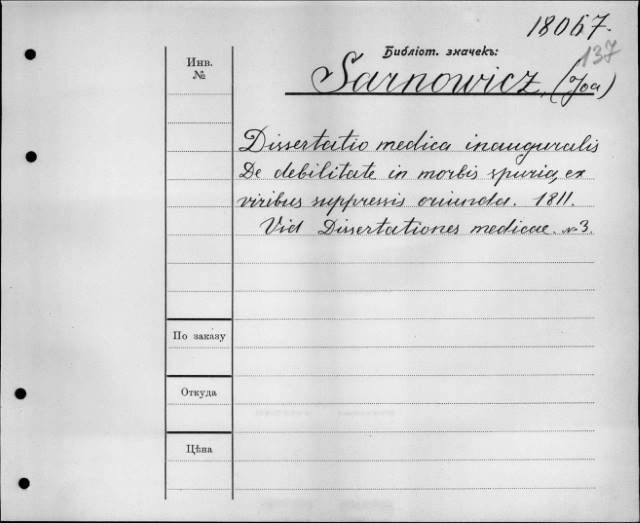 18067.
137
Библіот. значекъ:
Инв.
№
Sarnowicz, (Joa)
Dissertatio medica inauguralis
De debilitate in morbis spuria, ex
viribus suppressis oriunda. 1811.
Vid Dissertationes medicae. № 3.
По заказу
Откуда
Цѣна